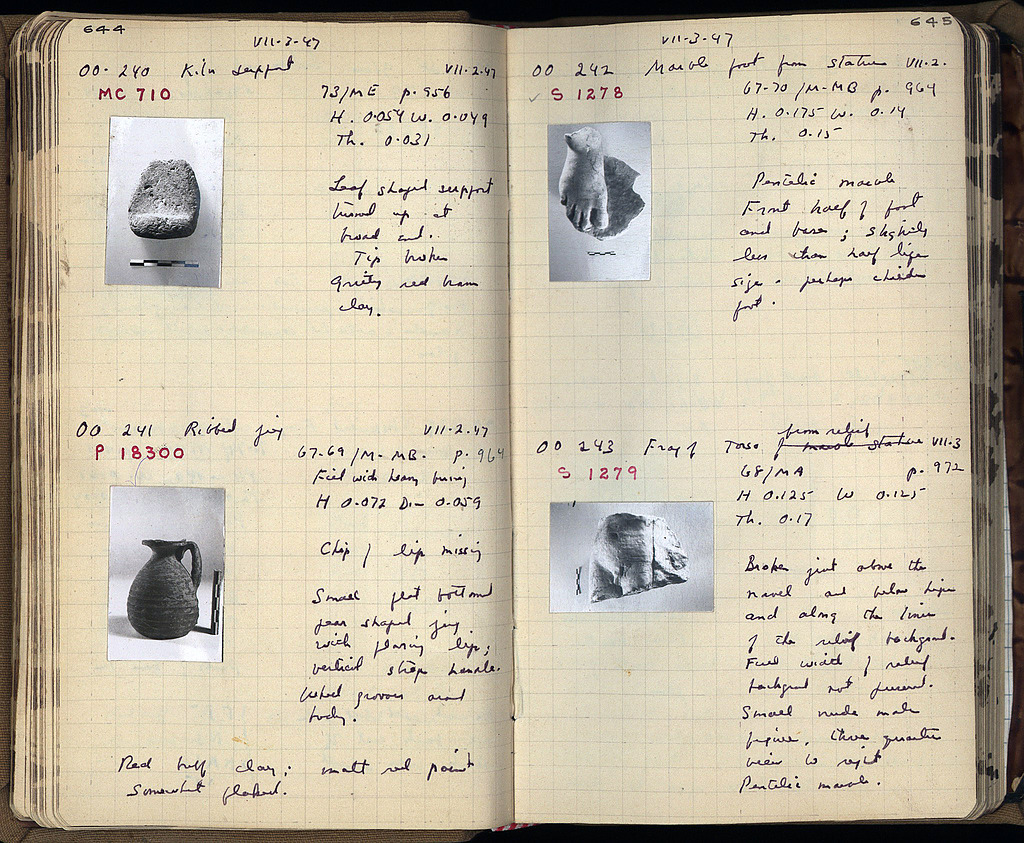 644
VII-3-47
OO 240 Kiln support VII-2-47
MC 710
73/ME p. 956
H. 0.054 W. 0.049
Th. 0.031
Leaf shaped support
turned up at
broad end.
Tip broken
Gritty red brown
clay.
OO 241 Ribbed jug VII-2-47
P 18300
67-69/M-MB. p. 964
Fill with heavy burning
H 0.072 D - 0.059
Chip of lip missing
Small flat bottomed
pear shaped jug
with flaring lip;
vertical strap handle.
Wheel grooves around
body.
Red buff clay; matt red paint
somewhat flaked.
645
VII-3-47
OO 242 Marble foot from statue VII-2-
S 1278
67-70/M-MB p. 964
H. 0.175 W. 0.14
Th. 0.15
Pentelic marble
Front half of foot
and base; slightly
less than half life
size - perhaps childs
foot.
from relief
OO 243 Frag of Torso of marble statue VII-3
S 1279
68/MA p. 972
H 0.125 W 0.125
Th. 0.17
Broken just above the
navel and below hips
and along the line
of the relief background.
Full width of relief
background not preserved.
Small nude male
figure, three quarter
view to right
Pentelic marble.